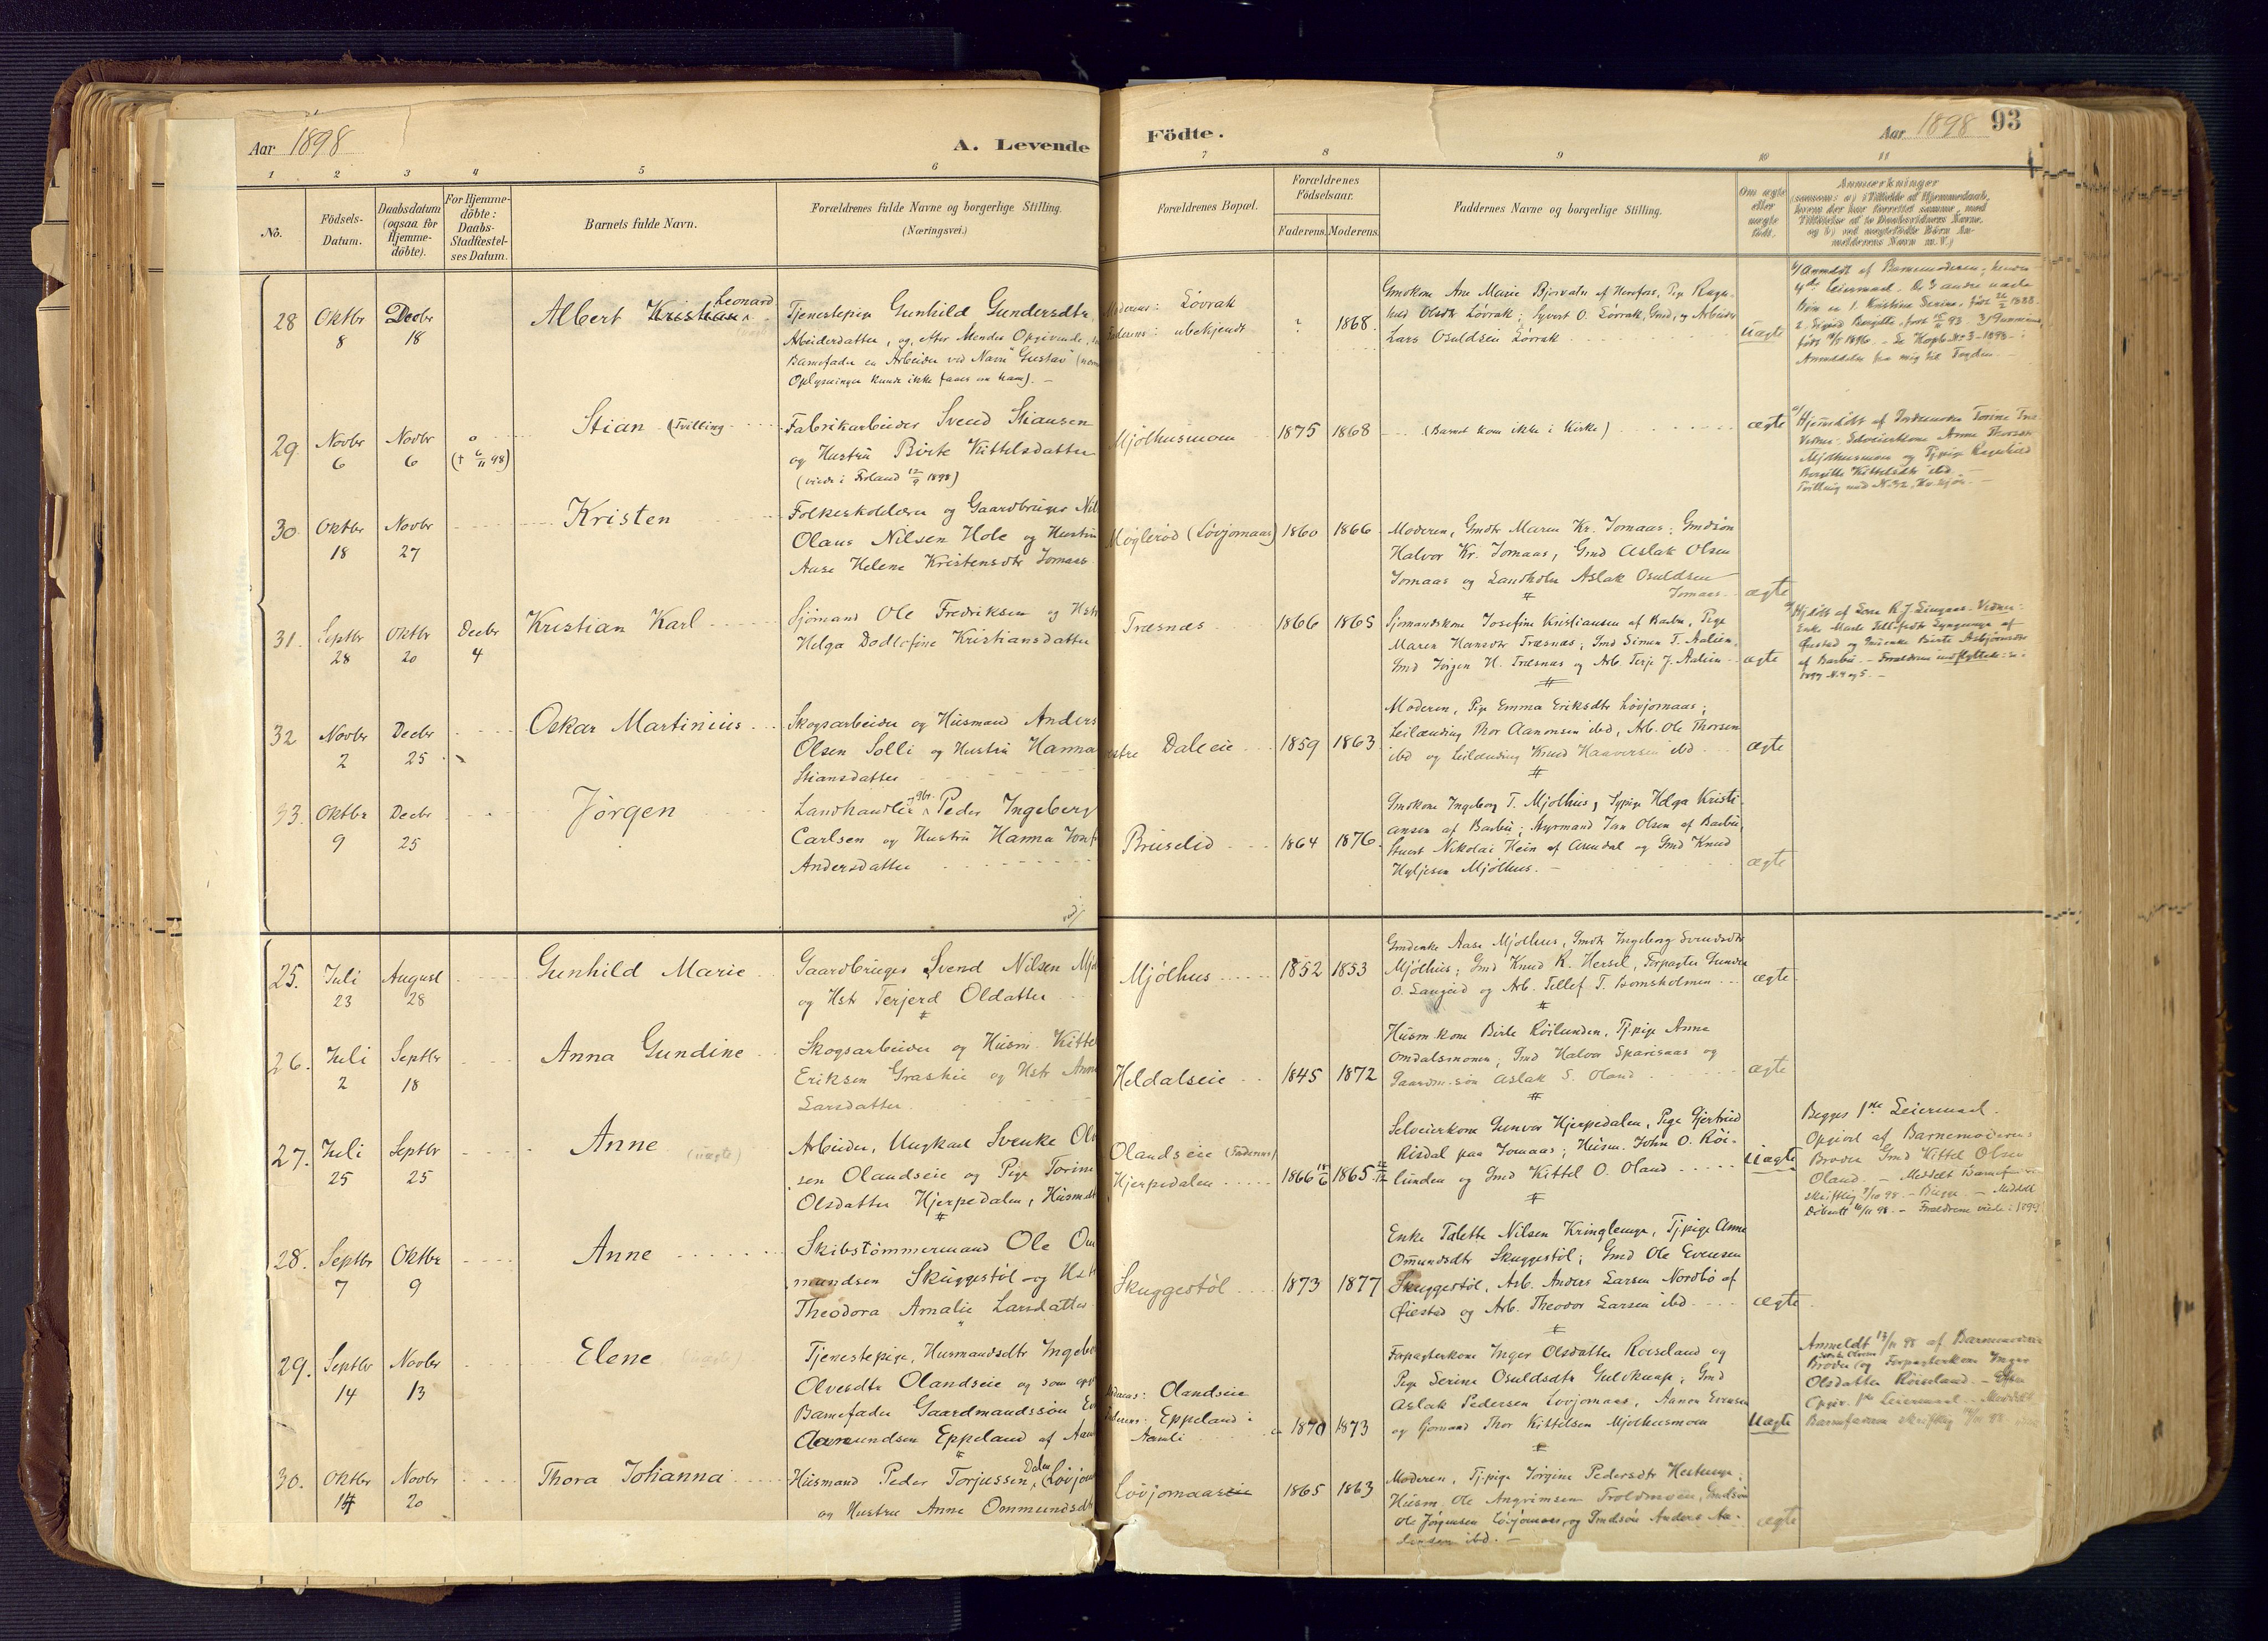 Aar 1898
A. Levende
Födte.
Aar 1898 93
1 2 3 4 5 6 7 8 9 10 11
No.
Födsels-
Datum.
Daabsdatum
(ogsaa for
Hjemme-
döbte).
For Hjemme-
döbte:
Daabs-
Stadfæstel-
ses Datum.
Barnets fulde Navn.
Forældrenes fulde Navne og borgerlige Stilling.
(Næringsvei.)
Forældrenes Bopæl.
Forældrenes
Födselsaar.
Faderens. Moderens.
Faddernes Navne og borgerlige Stilling.
Om ægte
eller
uægte
födt.
Anmærkninger
28
Oktbr
8
Decbr
18
Leonard
Albert Kristian
Tjenestepige Gunhild Gundersdtr,
Arbeidersdatter, og, efter Hendes Opgivende,
Barnefader en Arbeider ved Navn "Gustav"
Oplysninger kunde ikke faaes om ham). -
Moderens: Løvrak
Faderens: ubekjendt
?
1868.
Gmdkone Ane Marie Bjorvatn af Herefoss, Pige Ragn-
hild Olsdtr Løvrak; Syvert O. Løvrak, Gmd, og Arbeider
Lars Osuldsen Løvrak
Uægte
b/ Anmeldt af Barnemoderen; hendes
4de Leiermaal. De 3 andre uægte
Børn er 1. Kristine Severine, født 22/2 1888.
29
Novbr
6
Novbr
6
(† 6/11 98)
Stian (Tvilling
Fabrikarbeider Svend Stiansen
og Hustru Birte Kittelsdatter
(viede i Froland 12/9 1898)
Mjølhusmoen
1875
1868
(Barnet kom ikke i Kirke)
ægte
a/ Hjemdøbt af Jordemoder Torine
Vidner: Selveierkone Anne
Mjølhusmoen og Tj.pige Ragnhild
Bergitte Kittelsdtr ibd. -
30
Oktbr
18
Novbr
27
Kristen
Folkeskolelærer og Gaardbruger Nil
Olaus Nilsen Hole og Hustru
Aase Helene Kristensdtr Jomaas
Møglerød (Løvjomaas)
1860
1866
Moderen, Gmdtr Maren Kr. Jomaas; Gmdsøn
Halvor Kr. Jomaas, Gmd Aslak Olsen
Jomaas og Landholn Aslak Osuldsen
Jomaas
ægte
31.
Septbr
28
Oktbr
20
Decbr
4
Kristian Karl
Sjømand Ole Fredriksen og Hstr
Helga Dodlofine Kristiansdatter
Træsnæs
1866
1865
Sjømandskone Josefine Kristiansen af Barbu, Pige
Maren Hansdtr Træsnæs; Gmd Simen T. Aalien
Gmd Jørgen H. Træsnæs og Arb. Terje J. Aalien
ægte
32
Novbr
2
Decbr
25
Oskar Martinius
Skogsarbeider og Husmand Anders
Olsen Solli og Hustru Hanna
Stiansdatter
Daleeie
1859
1863
Moderen, Pige Emma Eriksdtr Løvjomaas;
Leilænding Thor Aanonsen ibd, Arb. Ole Thorsen
ibd og Leilænding Knud Haaversen ibd
ægte
33.
Oktbr
9
Decbr
25
Jørgen
Landhandler og gbr. Peder Ingeberg
Carlsen og Hustru Hanna
Andersdatter
Bruselid
1864
1876.
Gmdkone Ingeborg T. Mjølhus, Sypige Helga Kristi-
ansen af Barbu; Styrmand Jan Olsen af Barbu,
Stuert Nikolai Hein af Arendal og Gmd Knud
Hyljesen Mjølhus. -
ægte
25.
Juli
23
August
28
Gunhild Marie
Gaardbruger Svend Nilsen Mjø
og Hstr Terjerd Oldatter
Mjølhus
1852
1853
Gmdenke Aase Mjølhus, Gmdtr Ingeborg Svendsdtr
Mjølhus; Gmd Knud R. Hersel, Forpagter Gunder
O. Langeid og Arb. Tellef T. Bomsholmen
ægte
26.
Juli
2
Septbr
18
Anna Gundine
Skogsarbeider og Husm. Kittel
Eriksen Graslie og Hstr Anne
Larsdatter
Heldalseie
1845
1872
Husm.kone Birte Røilunden, Tj.pige Anna
Omdalsmonen; Gmd Halvor Sparsnaas og
Gaardm.søn Aslak S. Oland
ægte
27.
Juli
25
Septbr
25
Anne
(uægte)
Arbeider, Ungkarl Svenke Ol
sen Olandseie og Pige Torine
Olsdatter Hjerpedalen, Husmdt
Olandseie (Faderens)
Hjerpedalen
1866 18/6
1865
Selveierkone Gunvor Hjerpedalen, Pige Gjertrud
Risdal paa Jomaas; Husm. John O. Røi-
lunden og Gmd Kittel O. Oland
Uægte
Begges 1ste Leiermaal.
Opgivet af Barnemoderens
Broder Gmd Kittel Olsen
Oland. - Meddelt Barnefaderen
28.
Septbr
7
Oktbr
9
Anne
Skibstømmermand Ole Om
mundsen Skuggestøl og Hstr
Theodora Amalie Larsdatter
Skuggestøl
1873
1877
Enke Talette Nilsen Kringlemyr, Tj.pige Anne
Ommundsdtr Skuggestøl; Gmd Ole Evensen
Skuggestøl, Arb. Anders Larsen Nordbø af
Øiestad og Arb. Theodor Larsen ibd.
ægte
29.
Septbr
14
Novbr
13
Elene (uægte)
Tjenestepige, Husmandsdtr Ingebo
Olvesdtr Olandseie og som opg
Barnefader Gaardmandssøn Ev
Aamundsen Eppeland af Aam
Moderens: Olandseie
Faderens: Eppeland i
Aamli
1870
1873
Forpagterkone Inger Olsdatter Røiseland og
Pige Serine Osuldsdtr Guldknap; Gmd
Aslak Pedersen Løvjomaas, Aanon Evensen
og Gmmand Thor Kittelsen Mjølhusmoen
Uægte
Anmeldt 13/11 98 af Barnemoderens
Broder og Forpagterkone Inger
Olsdatter Røiseland.
Opgiv. 1ste Leiermaal. Meddelt
Barnefaderen skriftlig
30.
Oktbr
14
Novbr
20
Thora Johanna
Husmand Peder Torjussen Dalen, (Løvjom
og Hustru Anne Ommundsdt
Løvjomaaseie
1865
1863
Moderen, Tj.pige Jørgine Pedersdtr Hestmyr;
Husm. Ole Angrimsen Troldmoen, Gmdsøn
Ole Jørgensen Løvjomaas, og Gmdsøn Anders Aa-
ibd. -
ægte